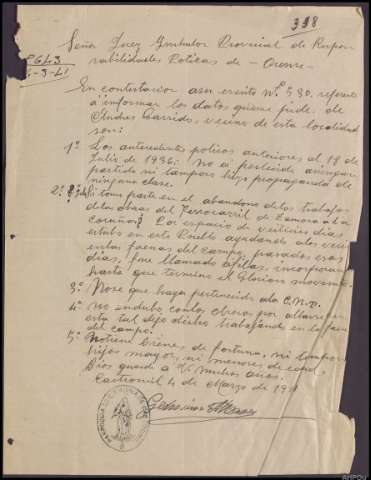 398
Señor Juez Instructor Provincial de Respon
sabilidades Politicas de - Orense -
2643
6-3-41
En contestacion a su escrito nº 530, referente
a informar los datos que me pide de
Andres Garrido, vecino de esta localidad
son:
1º Los antecedentes politicos anteriores al 18 de
Julio de 1936: No a pertenecido a ningun
partido ni tampoco hizo propaganda de
ninguna clase.
2º Si tomo parte en el abandono de los trabajos
de las obras del Ferrocarril de Zamora a la
Coruña? Por espacio de veintiun dias
estubo en este Pueblo ayudando a los veci
en las faenas del campo, pasados esos
dias, fue llamado a filas, incorporan
hasta que termino el Glorioso movim
3º No se que haya pertenecido a la C.N.T.
4º No andubo con los obreros por
esta tal dijo dicho trabajando en las faen
del campo.
5º No tiene bienes de fortuna, ni tampoco
hijos mayor, ni menores de edad.
Dios guarde a V. muchos años.
4 de Marzo de 1941